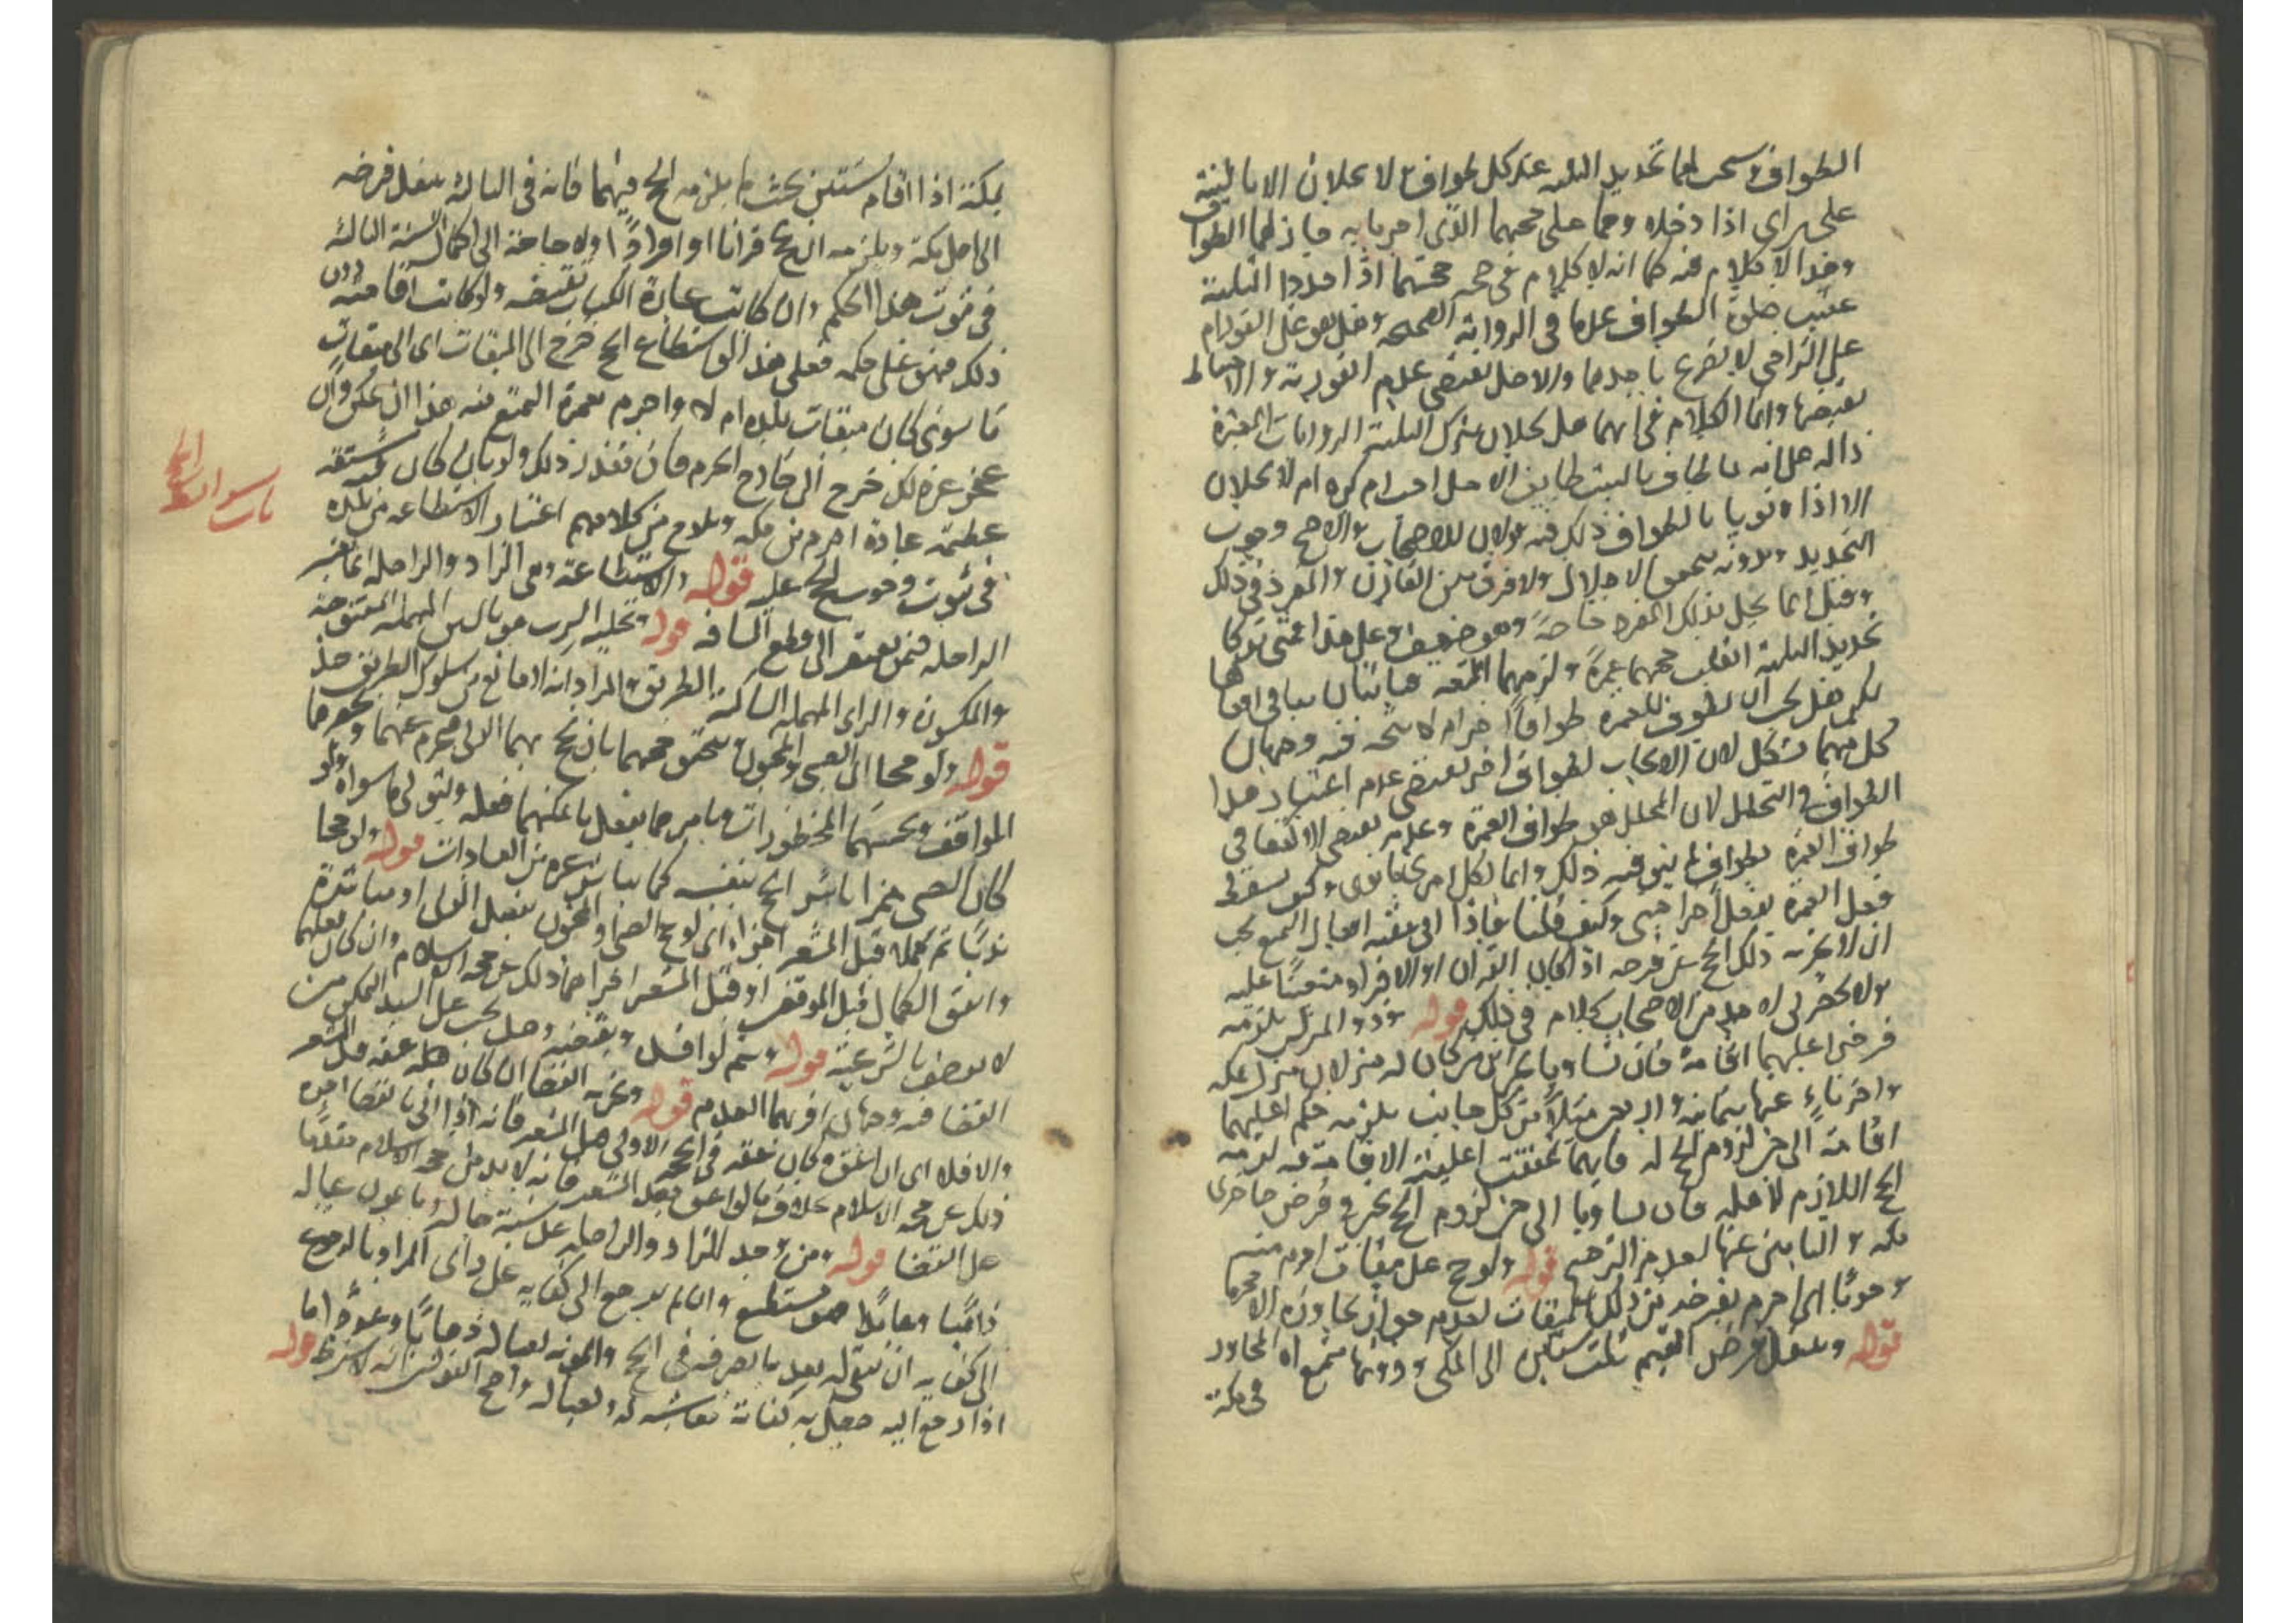 الطواف يستحب لهما تجديد التلبية عند كل طواف لا يحلان الا بالنية
على راى اذا دخلاه وهما على حجهما الذى احرما به جاز لهما الطواف
وهذا لا كلام فيه كما انه لا كلام فى صحة حجتهما اذا جددا التلبية
عقيب صلوة الطواف عملا فى الرواية الصحيحة وهل هو على الفور ام
على التراخى لا تصريح باحدهما والاصل يقتضى عدم الفورية والاحتياط
يقتضيها وانما الكلام فى انهما هل يحلان بترك التلبية الروايات المعتبرة
دالة على انه ما طاف بالبيت طايف الا حل احب ام كره ام لا يحلان
الا اذا نويا بالطواف ذلك فيه قولان للاصحاب والاصح وجوب
التجديد وبدونه يتحقق الاحلال ولا فرق بين القارن والمفرد فى ذلك
وقيل انما يحل بذلك المفرد خاصة وهو ضعيف وعلى هذا فمتى تركا
تجديد التلبية انقلب حجهما عمرة ولزمهما المتعة فياتيان بباقى افعالها
لكن هل يجب ان يطوف للعمرة طوافا اخر ام لا بحث فيه وجهان
كل منهما مشكل لان الايجاب لطواف اخر يقتضى عدم اعتبار هذا
الطواف فى التحلل لان المحلل هو طواف العمرة وعدمه يقتضى الاكتفا فى
طواف العمرة بطواف لم ينو فيه ذلك وانما لكل امرئ ما نوى وكيف يسقط
فعل العمرة بفعل اجنبى وكيف قلنا فاذا اتى ببقية افعال التمتع يجب
ان لا يجزيه ذلك الحج عن فرضه اذا كان القران او الافراد متعينا عليه
ولا يحضرنى لاحد من الاصحاب كلام فى ذلك قوله وذو المنزلين يلزمه
فرض اغلبهما اقامة فان تساويا تخير اى من كان له منزلان منزل بمكة
واخر ناء عنها بثمانية واربعين ميلا من كل جانب يلزمه حكم اغلبهما
اقامة الى حين لزوم الحج له فايهما تحققت اغلبية الاقامة فيه لزمه
الحج اللازم لاهله فان تساويا الى حين لزوم الحج تخير فى فرض حاضرى
مكة والنايين عنها لعدم الترجيح قوله ولو حج على ميقات احرم منه
وجوبا اى احرم بفرضه من ذلك الميقات لعدم جواز تجاوزه الا محرما
قوله وينتقل فرض المقيم ثلث سنين الى المكى ودونها يتمتع اى المجاور
فى مكة
بمكة اذا اقام سنتين بحيث لم يلزمه الحج فيهما فانه فى الثالثة ينتقل فرضه
الى اهل مكة ويلزمه ان يحج قرانا او افرادا ولا حاجة الى اكمال السنة الثالثة
فى ثبوت هذا الحكم وان كانت عبارة الكتاب تقتضيه ولو كانت اقامته دون
ذلك فهو على حكمه فعلى هذا لو استطاع الحج خرج الى الميقات اى الى ميقات
ما سوى كان ميقات بلده ام لا واحرم بعمرة التمتع منه هذا ان تمكن وان
عجز عن ذلك خرج الى خارج الحرم فان تعذر ذلك ولو بان كان فيه مشقة
عظيمة عادة احرم من مكة ويلوح من كلامهم اعتبار الاستطاعة من بلده
فى ثبوت وجوب الحج عليه قوله والاستطاعة وهى الزاد والراحلة انما تعتبر
الراحلة فيمن يفتقر الى قطع المسافة قوله وتخلية السرب هو بالسين المهملة المفتوحة
والسكون والراى المهملة الساكنة الطريق والمراد انه لا مانع من سلوك الطريق هذا
قوله ولو حجا اى الصبى والمجنون يتحقق حجهما بان يحج بهما الولى فيحرم عنهما ويحضرهما
المواقف ويجنبهما المحظورات ويامرهما بفعل ما يمكنهما فعله ويتولى ما سواه ولو
كان الصبى مميزا باشر الحج بنفسه كما يباشر غيره من العبادات قوله ولو حجا
ندبا ثم كملا قبل المشعر اجزا اى لو حج الصبى او المجنون بفعل الولى او مباشرة
واتفق الكمال قبل الموقف او قبل المشعر اجزاهما ذلك عن حجة الاسلام وان كان فعلهما
لا يوصف بالشرعية قوله ويتم لو افسد ويقضيه وهل يجب على السيد التمكين من
القضا فيه وجهان اقربهما العدم قوله ويجزيه القضا ان كان عتقه قبل المشعر
والا فلا اى ان اعتق وكان عتقه فى الحجة الاولى قبل المشعر فانه اذا اتى بالقضا اجزاه
ذلك عن حجة الاسلام بخلاف ما لو اعتق بعد المشعر فانه لا بد من حجة الاسلام مقدما
على القضا قوله ومن وجد الزاد والراحلة على نسبة حاله وما يمون عياله
ذاهبا وعايدا فهو مستطيع وان لم يرجع الى كفاية على راى المراد بالرجوع
الى كفاية ان يبقى له بعد ما يصرفه فى الحج والمونة لعياله ذهابا وعودا ما
اذا رجع اليه حصل به كفاية معاشه له ولعياله واصح القولين انه لا يشترط قوله